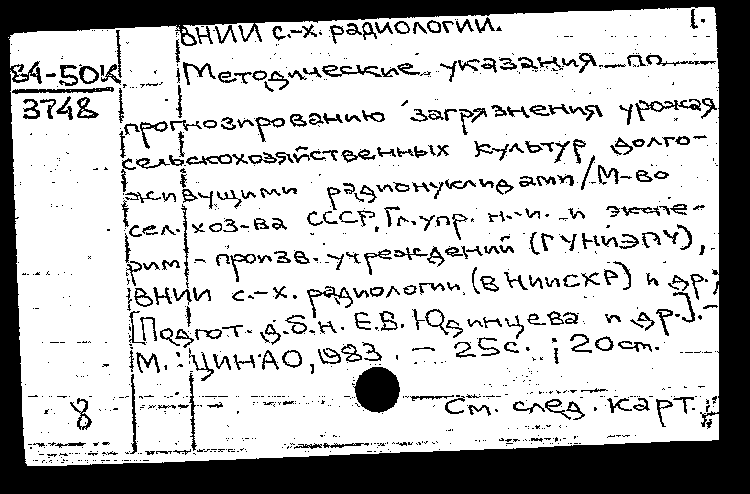 ВНИИ с.-х. радиологии.
1.
84-50К
3748
Методические указания по
прогнозированию загрязнения урожая
сельскохозяйственных культур долго-
живущими радионуклидами/М-во
сел. хоз-ва СССР, Гл. упр. н.-и. и экспе-
рим-произв. учреждений (ГУНиЭПУ),
ВНИИ с.-х. радиологии (ВНИИСХР) и др.;
[Подгот. д.б.н. Е.В. Юдинцева и др.]. -
М.: ЦИНАО, 1983. - 25с.; 20см.
8
См. след. карт.